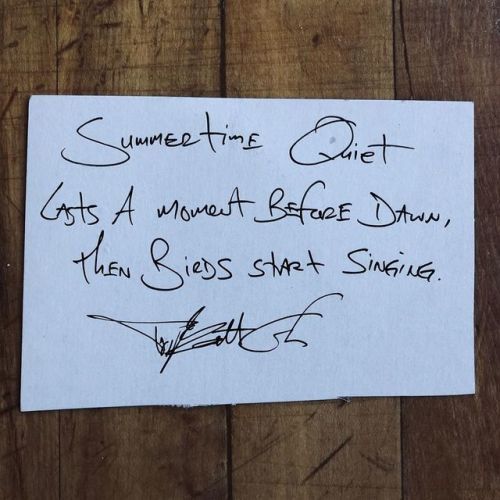 Summertime Quiet
Lasts A moment Before Dawn,
then Birds start Singing.